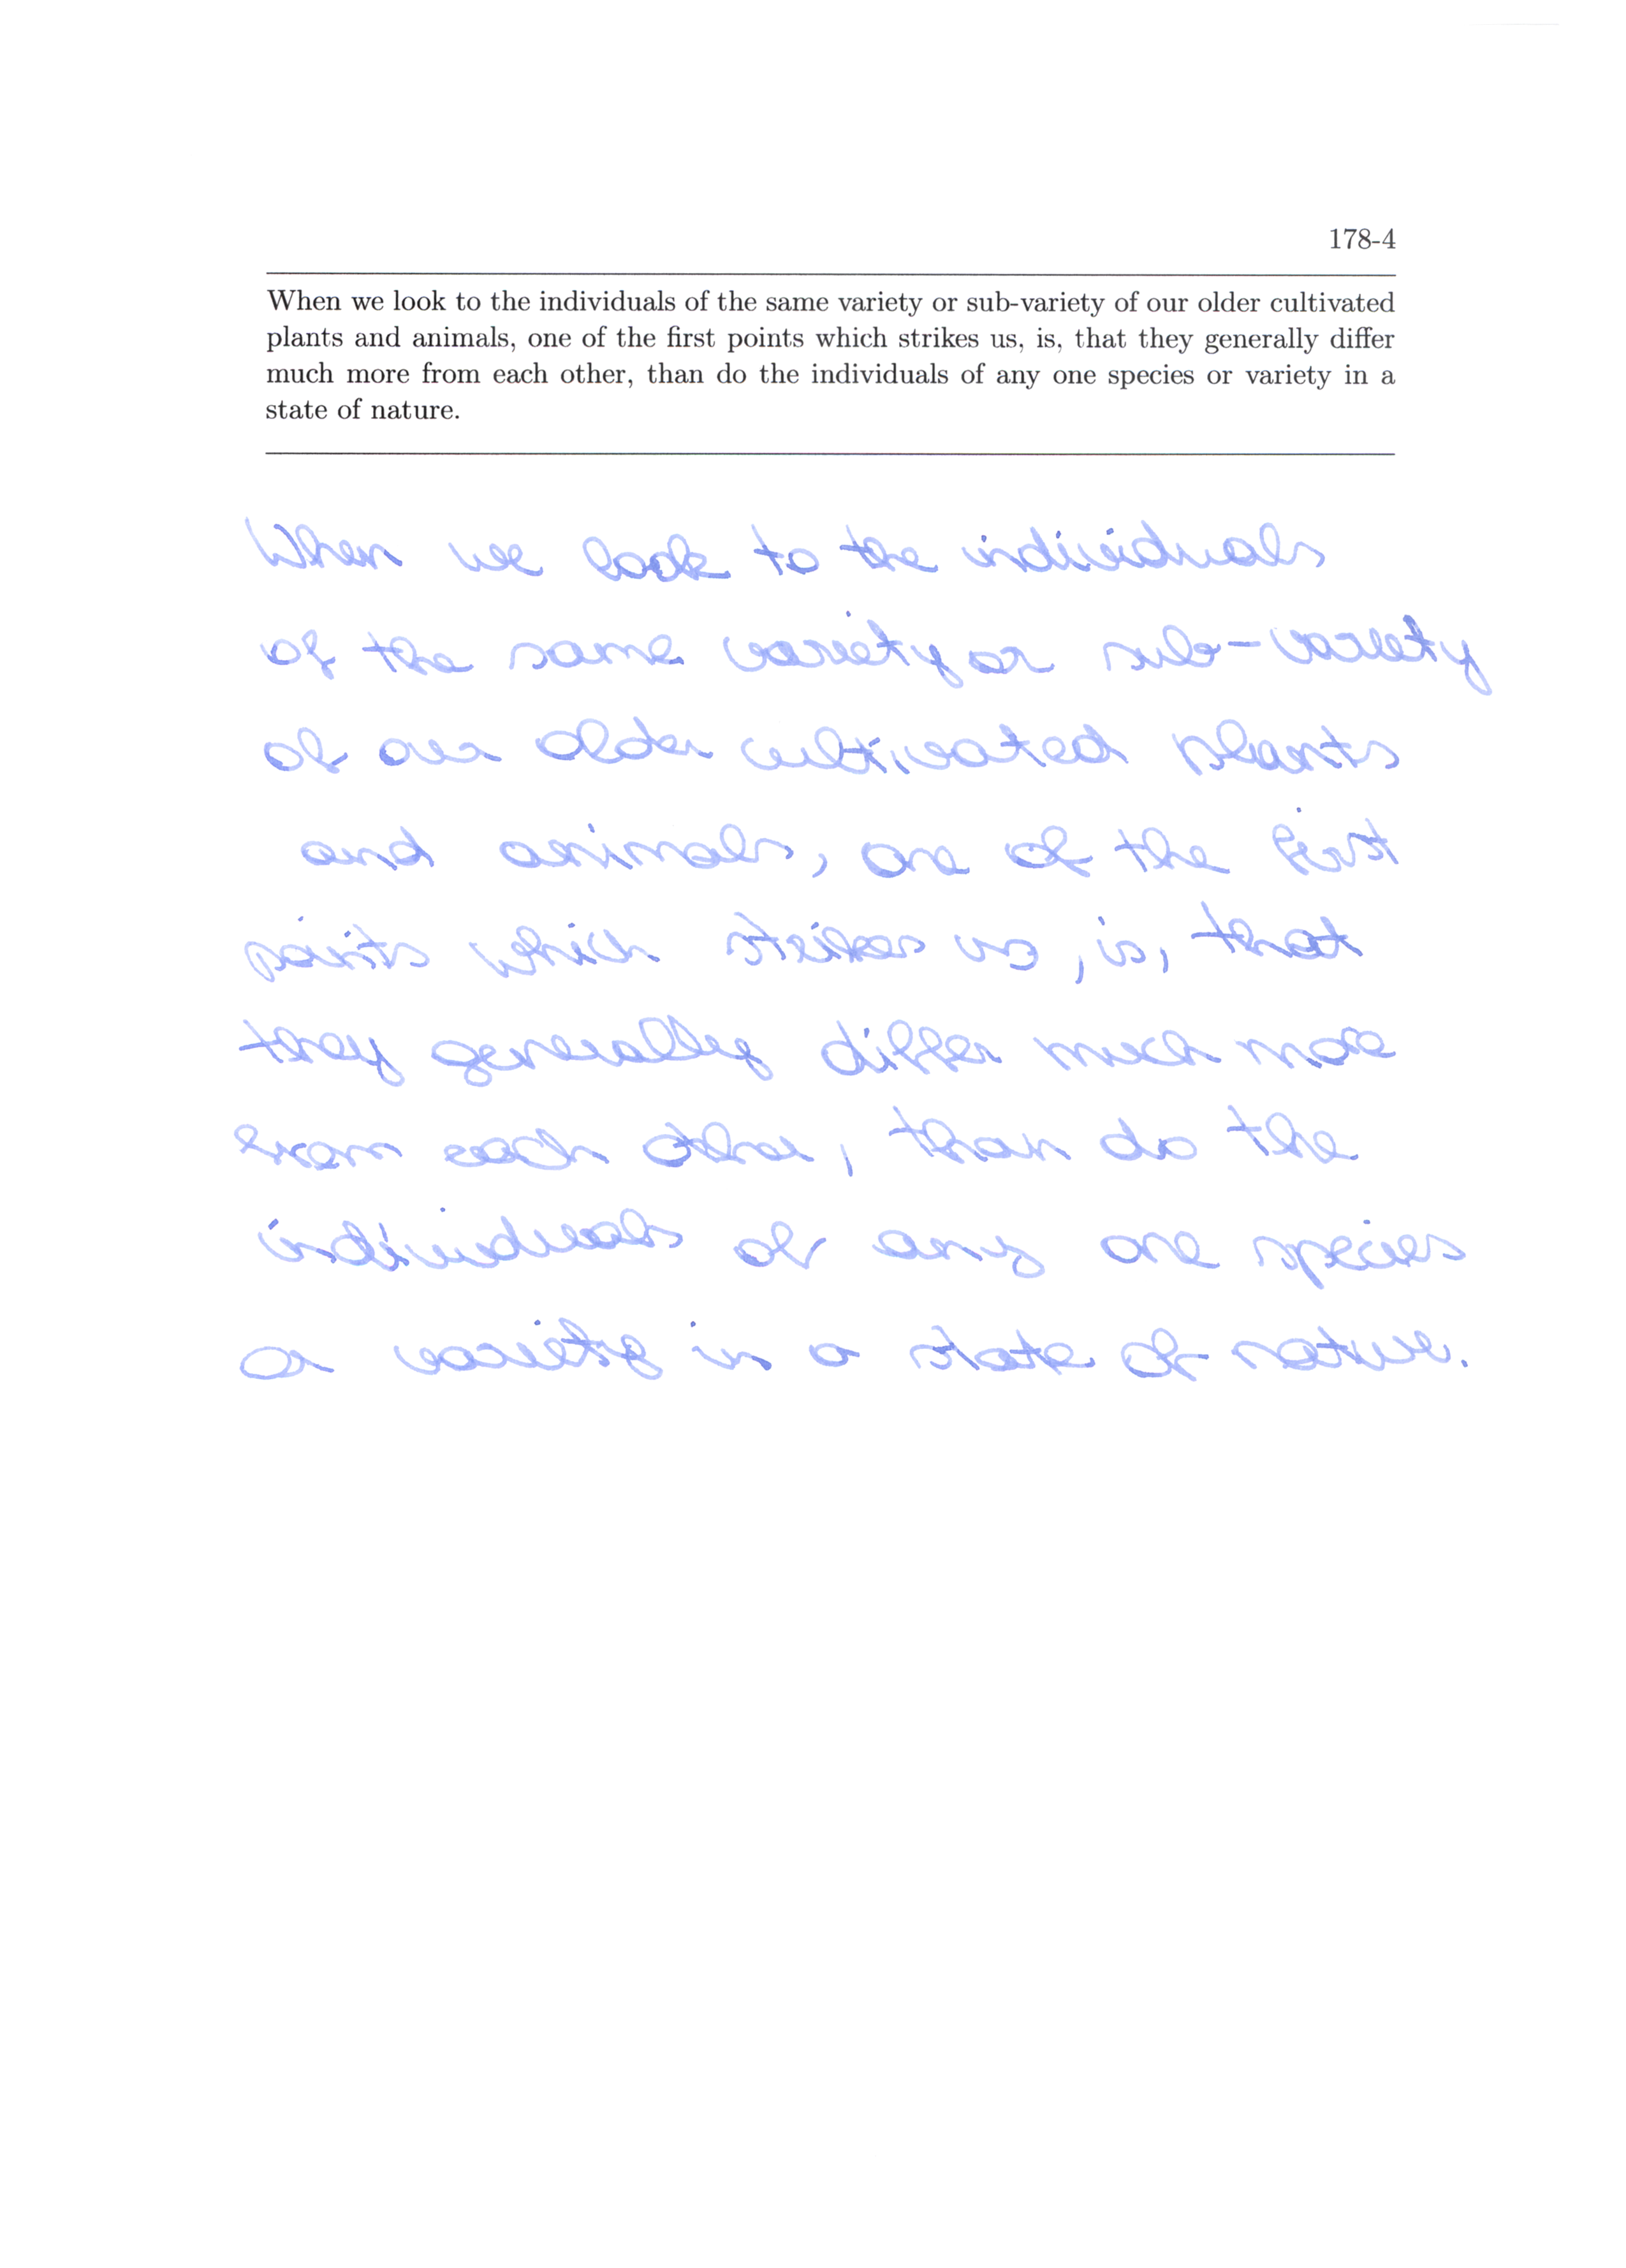 178-4
When we look to the individuals of the same variety or sub-variety of our older cultivated
plants and animals, one of the first points which strikes us, is, that they generally differ
much more from each other, than do the individuals of any one species or variety in a
state of nature.
When we look to the individuals
of the same variety or sub-variety
of our older cultivated plants
and animals, one of the first
points which strikes us, is, that
they generally differ much more
from each other, than do the
individuals of any one species
or variety in a state of nature.